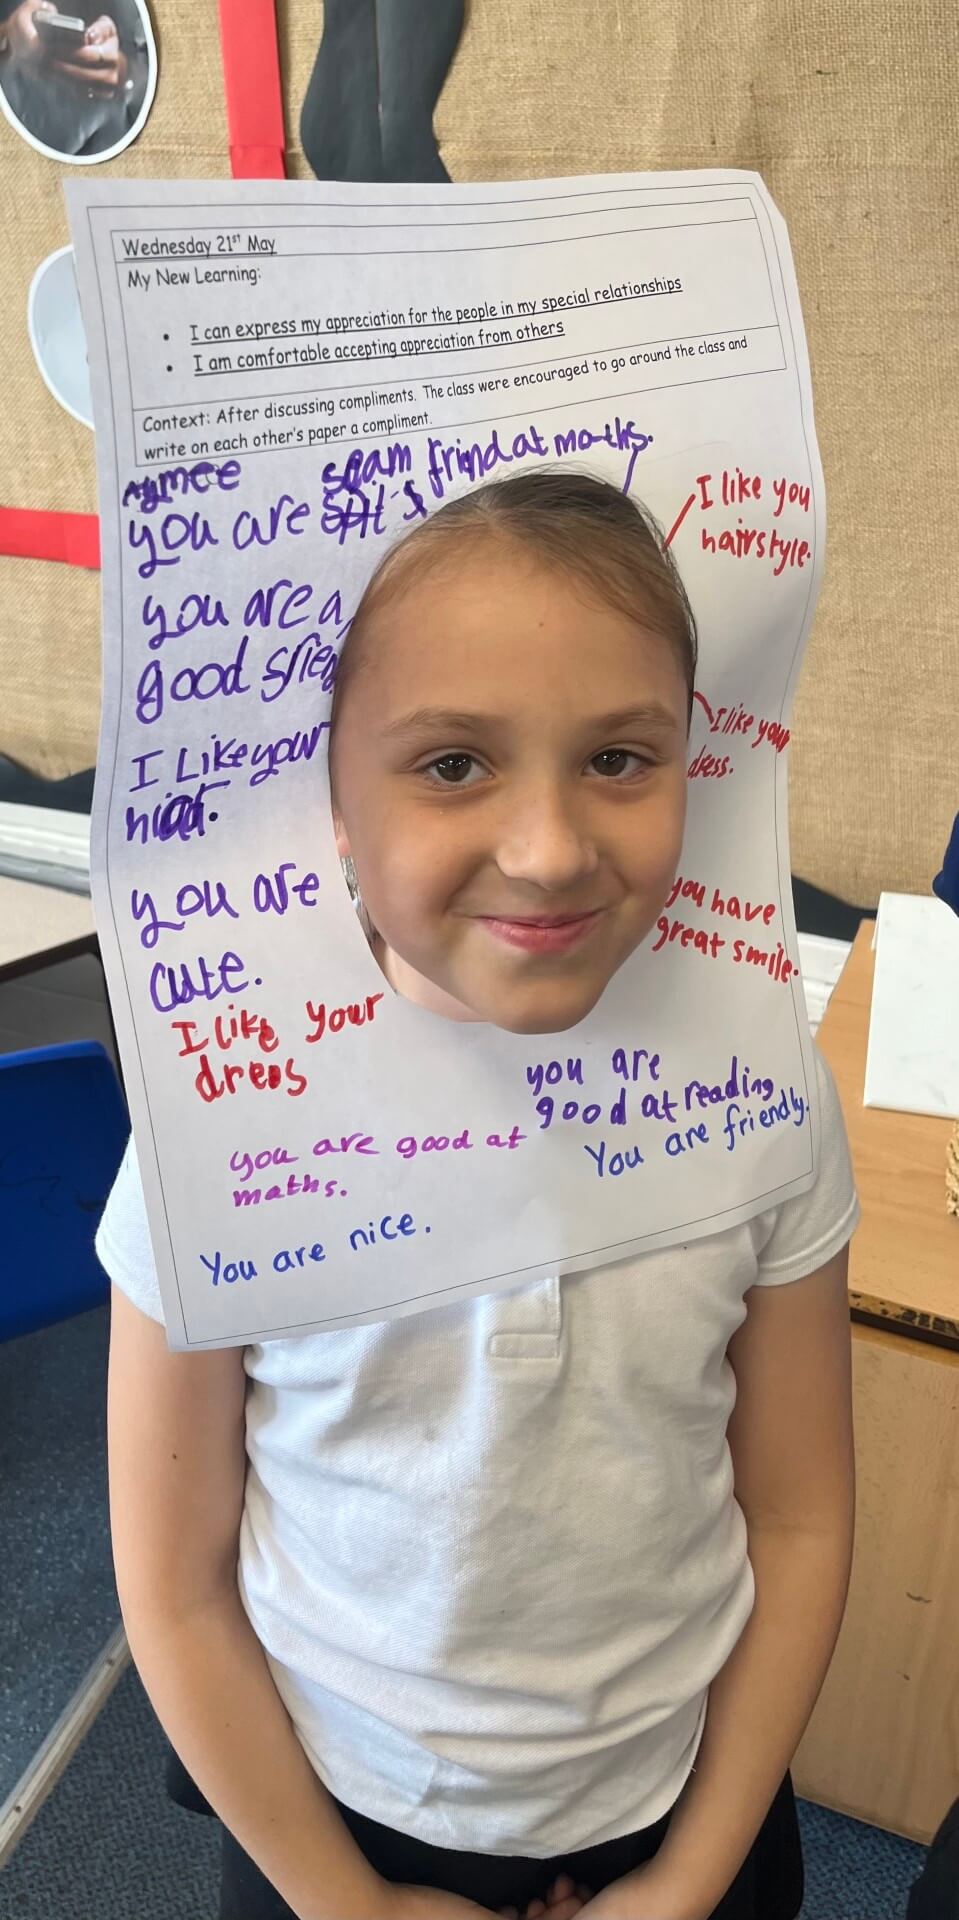 Wednesday 21st May
My New Learning:
• I can express my appreciation for the people in my special relationships
• I am comfortable accepting appreciation from others
Context: After discussing compliments. The class were encouraged to go around the class and
write on each other's paper a compliment.
frind at maths.
you are
you are a
good
I Like your
you are
cute.
I like your
dress
I like you
hairstyle.
I like your
dress.
you have
great smile.
you are
good at reading
You are friendly.
you are good at
maths.
You are nice.